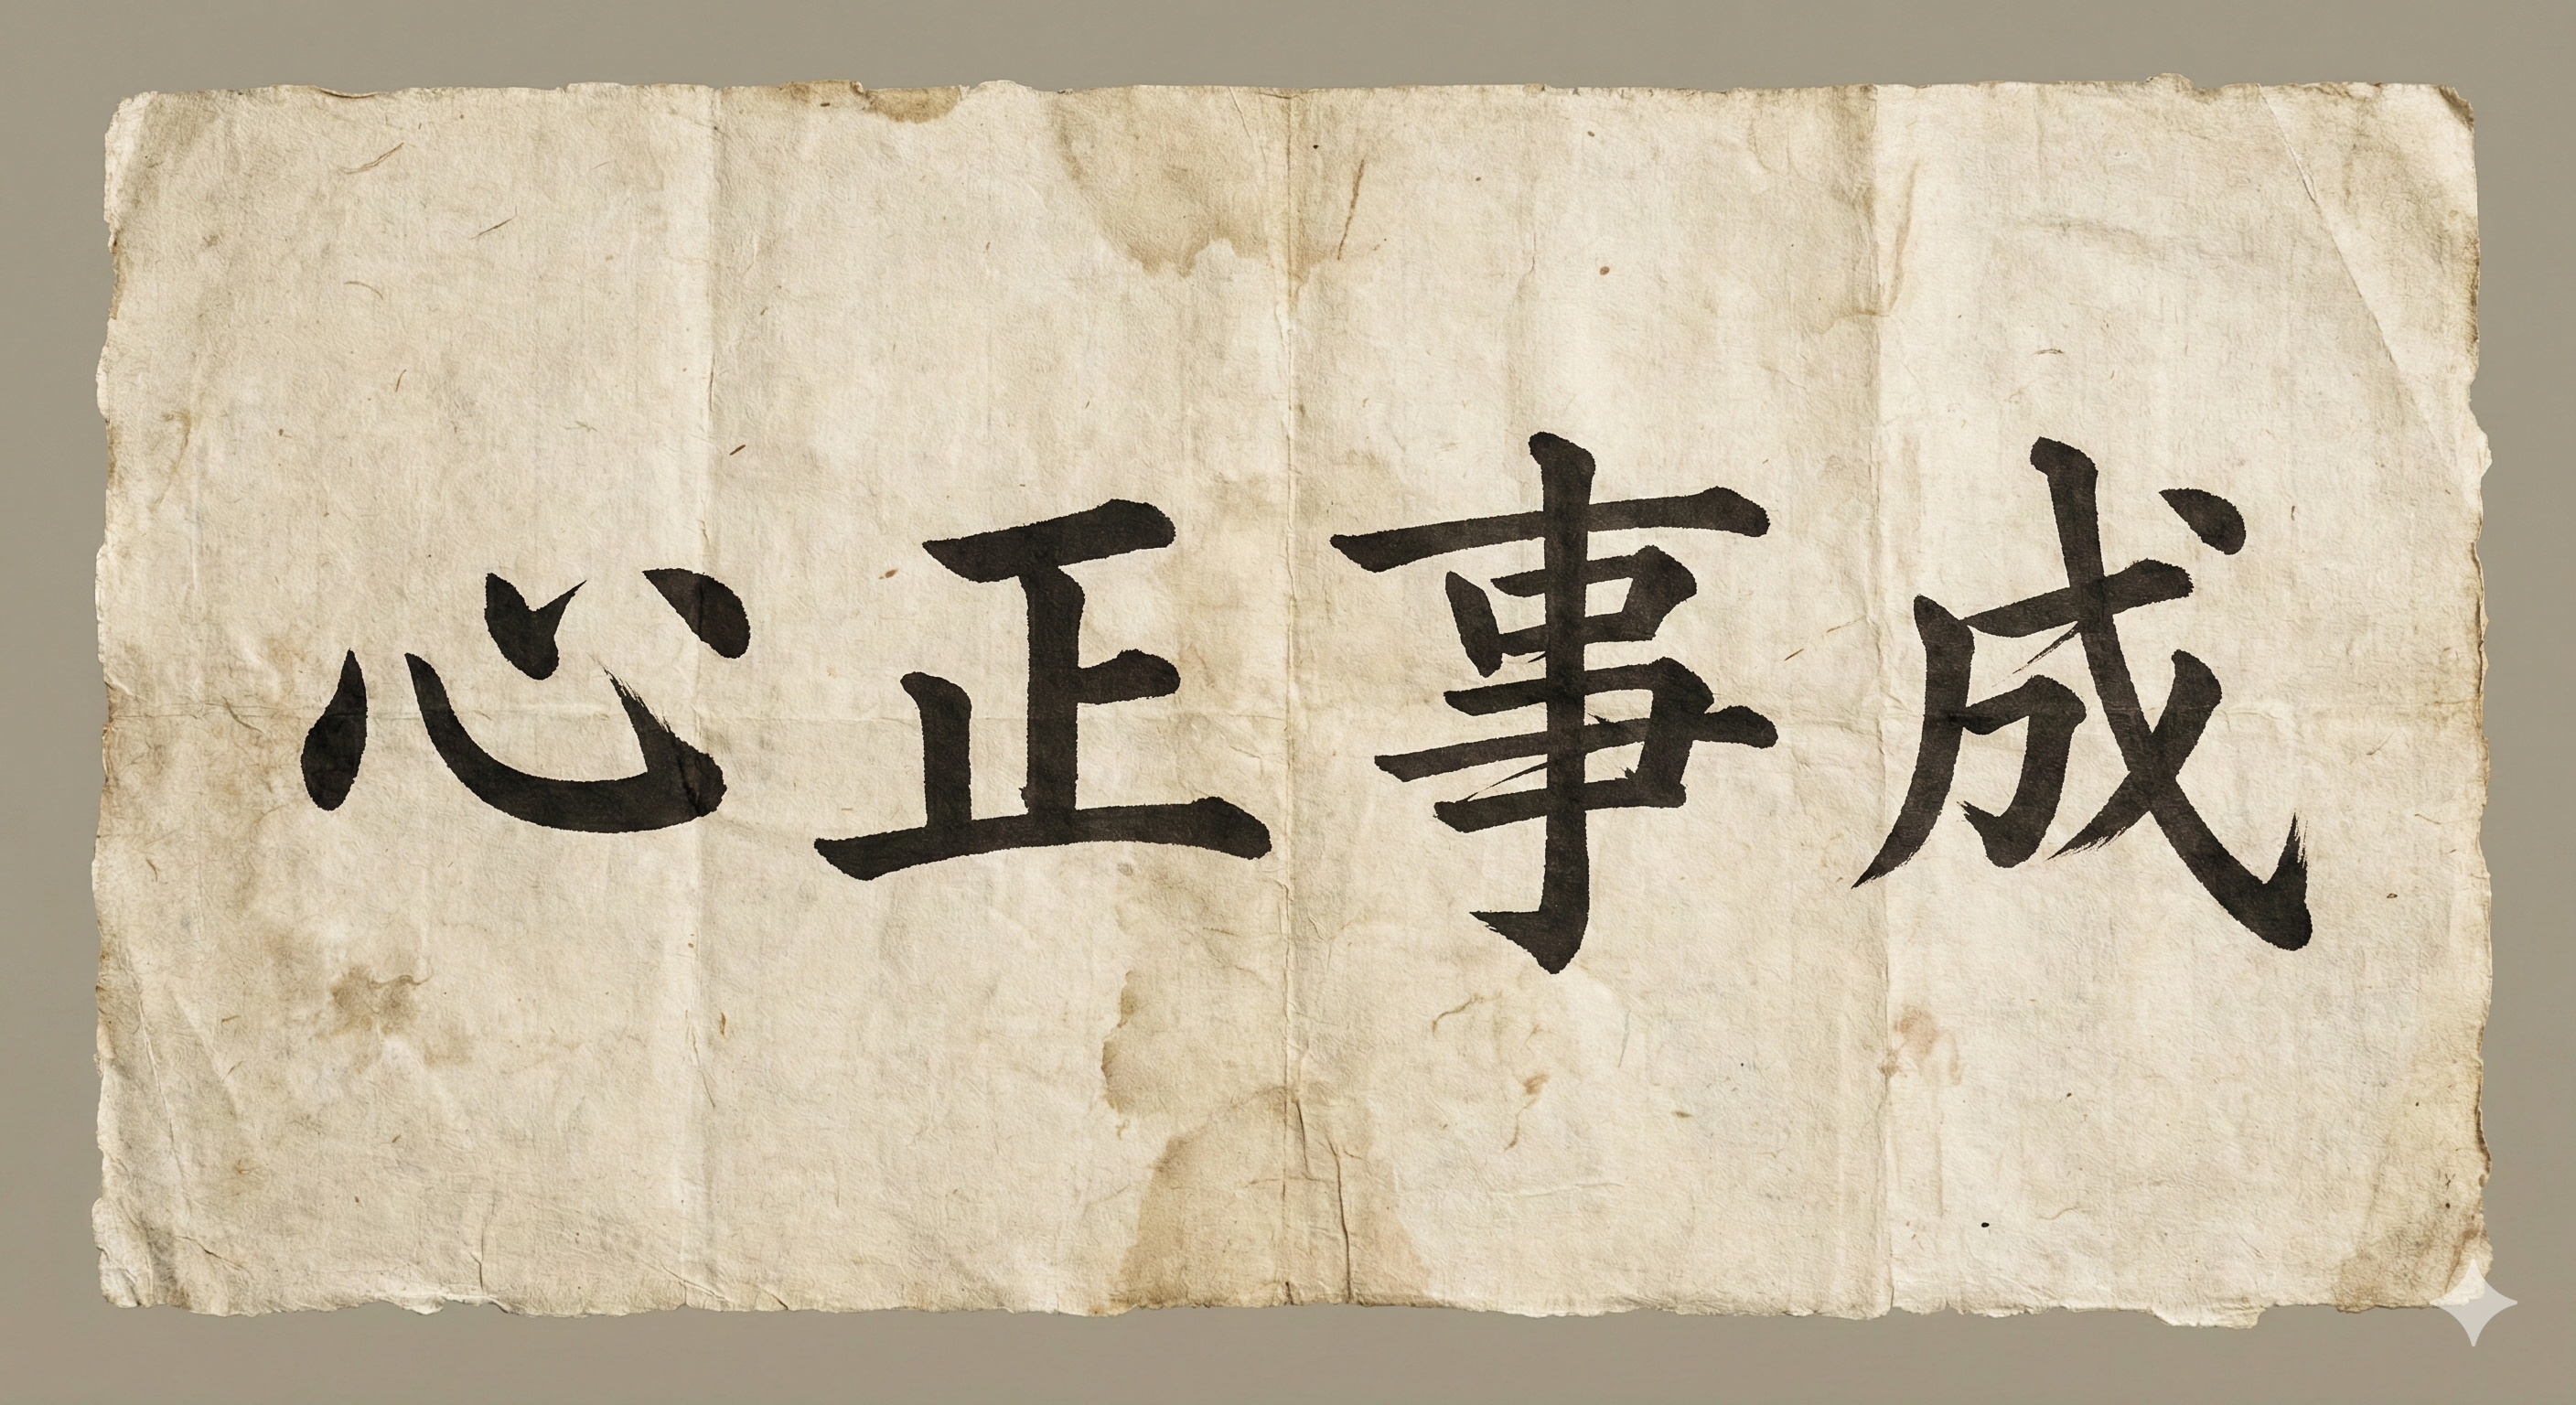 心正事成